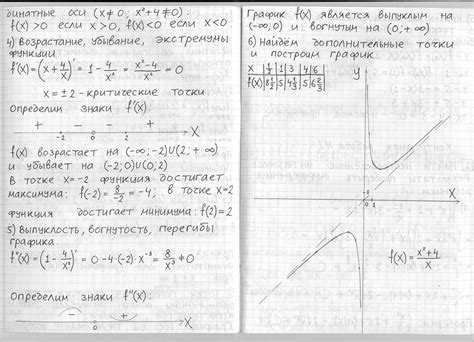 динатные оси (x≠0, x²+4≠0).
f(x)>0 если x>0, f(x)<0 если x<0
4) Возрастание, убывание, экстремумы
функции
f'(x)=(x+4/x)'=1-4/x²=x²-4/x²=0
x=±2-критические точки
Определим знаки f'(x):
+ - - +
-2 0 2 X
f(x) возрастает на (-∞;-2)U(2;+∞)
и убывает на (-2;0)U(0;2)
В точке x=-2 функция достигает
максимума: f(-2)=8/-2=-4; в точке x=2
функция достигает минимума: f(2)=2
5) Выпуклость, вогнутость, перегибы
графика.
f"(x)=(1-4/x²)'=0-4·(-2)·x⁻³=8/x³≠0
Определим знаки f"(x):
- +
0 X
График f(x) является выпуклым на
(-∞,0) и вогнутым на (0;+∞)
6) Найдём дополнительные точки
и построим график.
x 1/2 1 3 4 6
f(x) 8 1/2 5 4 1/3 5 6 2/3
y
X
f(x)=x²+4/x